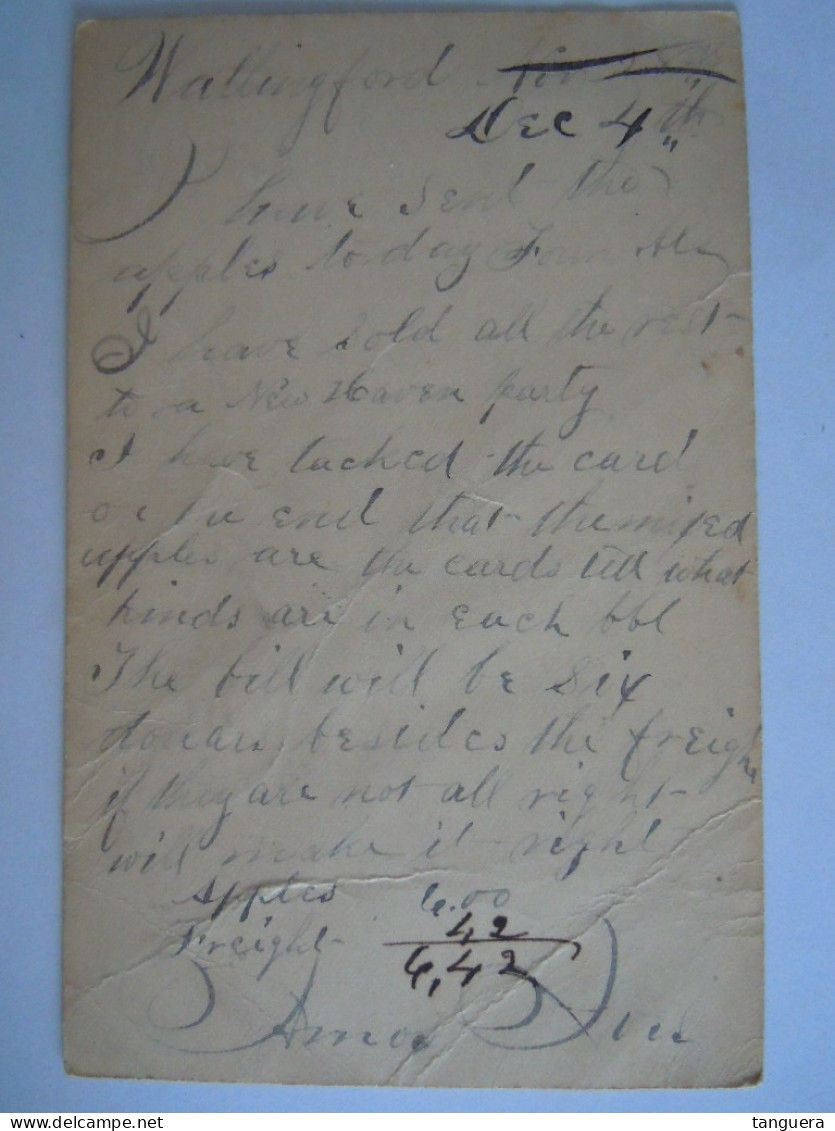 Wallingford Nov
Dec 4th
I have send the
apples to day Four
I have sold all the rest
to a New Haven party
I have tacked the card
on the end that the mixed
apples are the cards tell what
kinds are in each bbl
The bill will be Six
douars besides the freigh
if they are not all right
will make it right
Apples 6.00
Freight 42
6,42
Amos
www.delcampe.net
tanguera